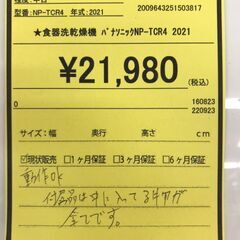 型番: NP-TCR4 年式: 2021
2009643251503817
★食器洗乾燥機 ﾊﾟﾅｿﾆｯｸNP-TCR4 2021
¥21,980
(税込)
160823
220923
サイズ: 幅 奥行 高さ cm
☑現状販売 □1ヶ月保証 □3ヶ月保証 □6ヶ月保証
動作OK
付属品は中に入ってる物が
全てです。